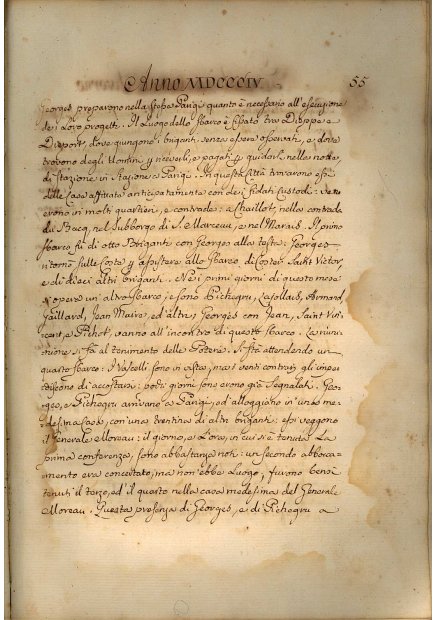 Anno MDCCCIV. 55
Georges preparono nella stessa Parigi quanto è necessario all'esecuzione
dei loro progetti. Il luogo dello sbarco è fissato tra Dieppe e
dove giungono i briganti senza essere osservati, e dove
trovono degli Uomini per riceverli, e pagati per guidarli nella notte
di Stazione in Stazione a Parigi. In questa Città trovarono essi
delle Case affittate anticipatamente con dei fidati Custodi: ve ne
erono in molti quartieri, e contrade: a Chaillot, nella contrada
du Bacq, nel subborgo di S. Marceau, e nel Marais. Il primo
sbarco fù di otto Briganti con Georges alla testa: Georges
ritornò sulle Coste per assistere allo sbarco di Coster Saint Victor,
e di dieci altri briganti. Nei primi giorni di questo mese
s'opera un altro sbarco, e sono Pichegru, Lajollais, Armand
Gaillard, Jean Maire, ed altri; Georges con Jean, Saint Vin-
cent, e Pichot, vanno all'incontro di questo sbarco. La riuni-
zione si fà al tenimento delle Poterie. Si stà attendendo un
quarto sbarco: i Vascelli sono in vista, ma i venti contrarj gl'impe-
discono di accostarsi: pochi giorni sono erono già segnalati. Geor-
ges, e Pichegru arrivano a Parigi, ed alloggiano in una me-
desima casa, con una trentina di altri briganti: essi veggono
il Generale Moreau: il giorno, e l'ora, in cui s'è tenuta la
prima conferenza, sono abbastanza noti: un secondo abbocca-
mento era concertato, ma non ebbe luogo; furono bensì
tenuti il terzo, ed il quarto nella casa medesima del Generale
Moreau. Questa presenza di Georges, e di Pichegru a